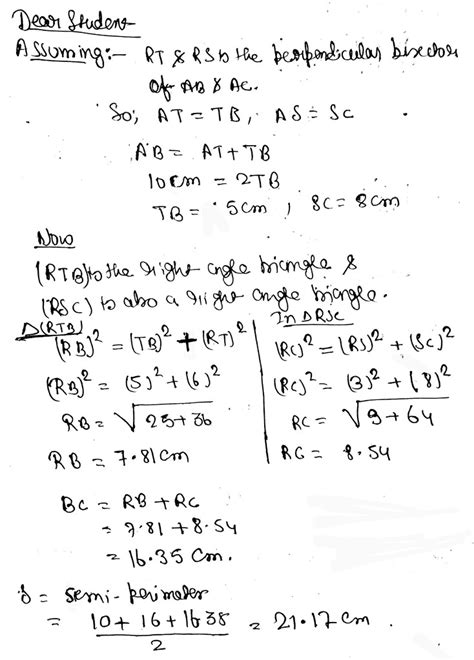 Dear Student
Assuming:- RT & RS is the perpendicular bisector
of AB & AC.
So; AT = TB, AS = SC
AB = AT + TB
10cm = 2TB
TB = 5cm ; SC = 8cm
Now
(RTB) is the right angle triangle &
(RSC) is also a right angle triangle.
Δ(RTB)
(RB)² = (TB)² + (RT)²
(RB)² = (5)² + (6)²
RB = √25+36
RB = 7.81cm
In ΔRSC
(RC)² = (RS)² + (SC)²
(RC)² = (3)² + (8)²
RC = √9+64
RC = 8.54
BC = RB + RC
= 7.81 + 8.54
= 16.35 cm.
s = semi-perimeter
= 10+16+16.38 / 2 = 21.17 cm.